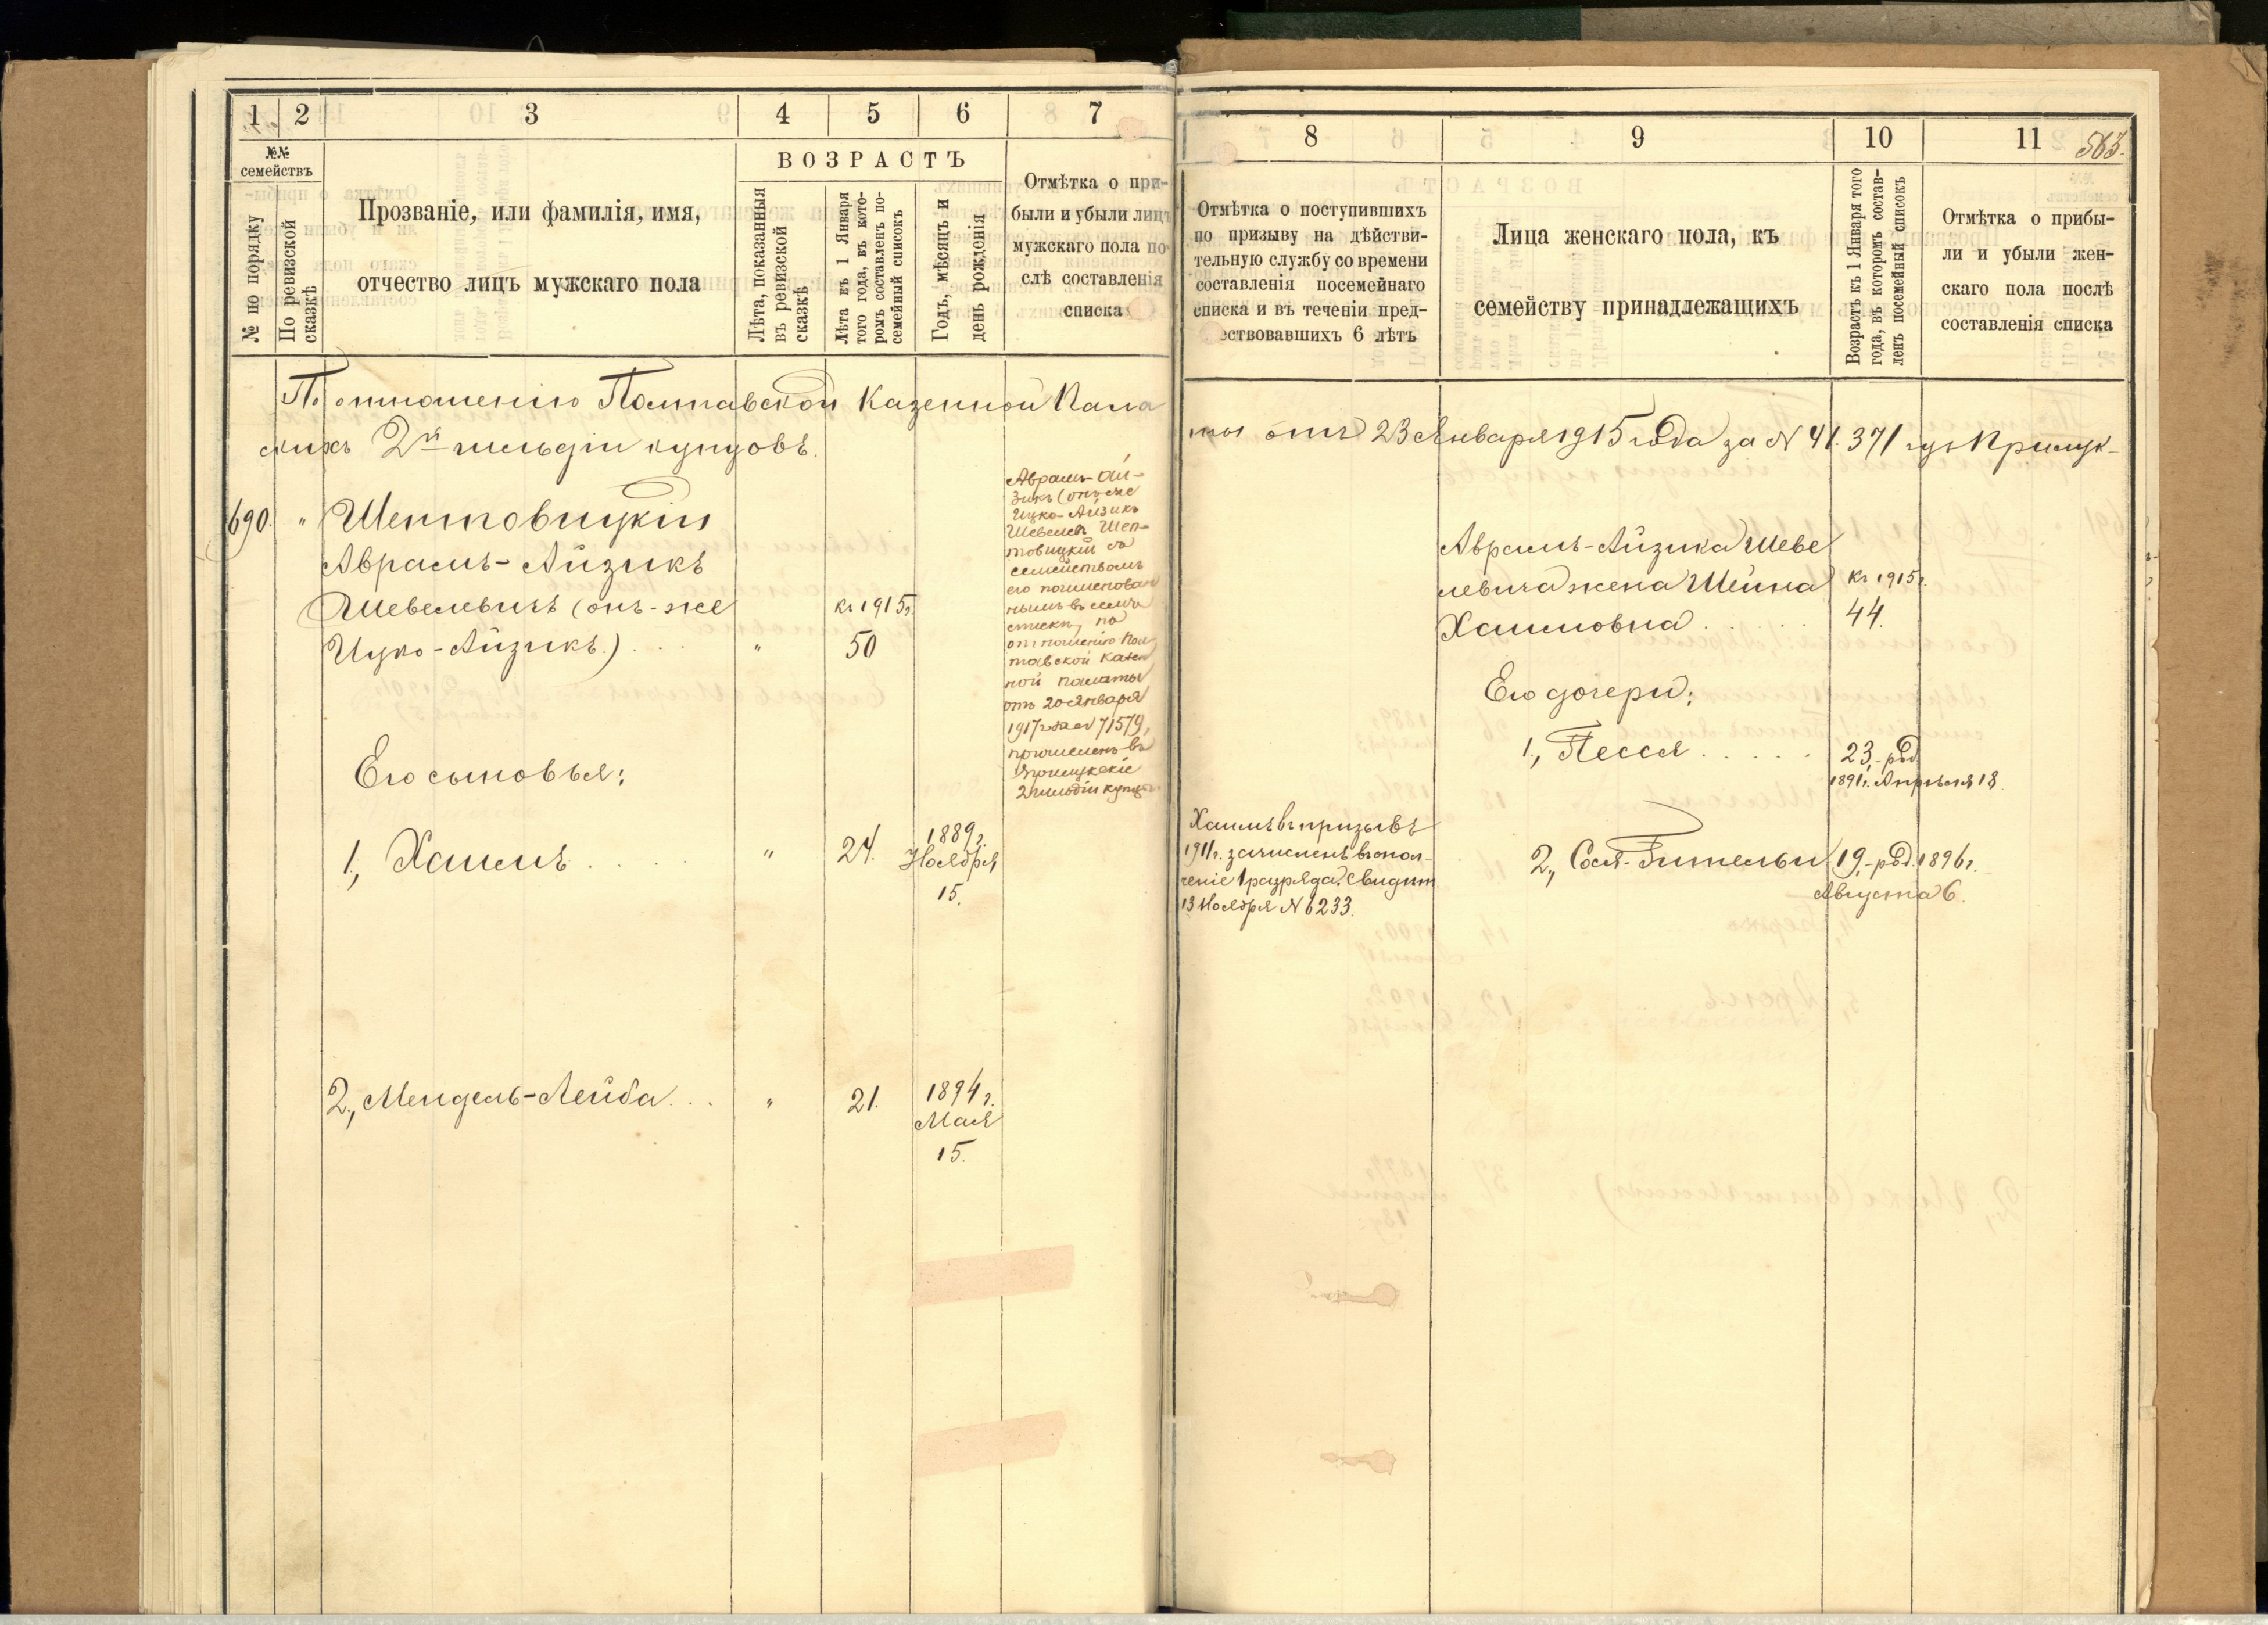 1 2 3 4 5 6 7
№№ семействъ
№ по порядку
По ревизской сказкѣ
Прозваніе, или фамилія, имя,
отчество лицъ мужскаго пола
ВОЗРАСТЪ
Лѣта, показанныя
въ ревизской
сказкѣ
Лѣта къ 1 Января
того года, въ кото-
ромъ составленъ по-
семейный списокъ
Годъ, мѣсяцъ и
день рожденія
Отмѣтка о при-
были и убыли лицъ
мужскаго пола по
слѣ составленія
списка
По отношенію Полтавской Казенной Пала
скихъ 2й гильдіи купцовъ.
690. " Шептовицкій
Авраамъ-Айзикъ
Шевелевичъ (онъ-же
Ицко-Айзикъ) . . . "
Къ 1915г.
50
Авраамъ-Ай-
зикъ (онъ же
Ицко-Айзикъ
Шевелев Шеп-
товицкій со
семействомъ
его поименован
нымъ въ семъ
списке, по
отношенію Пол
тавской Казен
ной палаты
отъ 20 Января
1917 года № 71579,
причисленъ въ
Прилукскіе
2 гильдіи купцы
Его сыновья:
1, Хаимъ . . . . " 24. 1889г.
Ноября
15.
2, Мендель-Лейба . . . " 21. 1894г.
Мая
15.
8 9 10 11
563.
Отмѣтка о поступившихъ
по призыву на дѣйстви-
тельную службу со времени
составленія посемейнаго
списка и въ теченіи пред-
ествовавшихъ 6 лѣтъ
Лица женскаго пола, къ
семейству принадлежащихъ
Возрастъ къ 1 Января того
года, въ которомъ состав-
ленъ посемейный списокъ
Отмѣтка о прибы-
ли и убыли жен-
скаго пола послѣ
составленія списка
ты отъ 23 Января 1915 года за № 41.371 изъ Прилук-
Авраамъ-Айзика Шеве
левича жена Шейна
Хаимовна . . . . .
Къ 1915г.
44.
Его дочери:
1, Песся . . . . . 23, род.
1891г. Апрѣля 18.
Хаимъ въ призывѣ
1911г. зачисленъ въ опол-
ченіе 1 разряда. Свидѣт
13 Ноября № 6233.
2, Сося-Гительи 19, род. 1896г.
Августа 6.